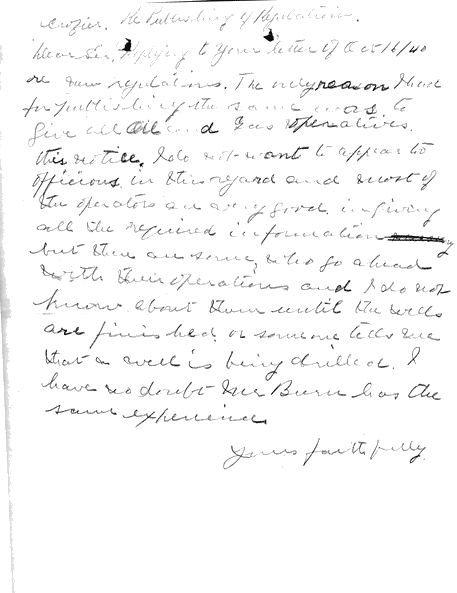 Crozier. Re Publishing of Regulations.
Dear Sir, Replying to your letter of Oct 16/40
re new regulations. The only reason I had
for publishing the same was to
give all Oil and Gas operatives
this notice. I do not want to appear to
officious in this regard and most of
the operators are very good in giving
all the required information
but there are some, who go ahead
with their operations and I do not
know about them until the wells
are finished or someone tells me
that a well is being drilled. I
have no doubt Mr Burn has the
same experience
Yours faithfully